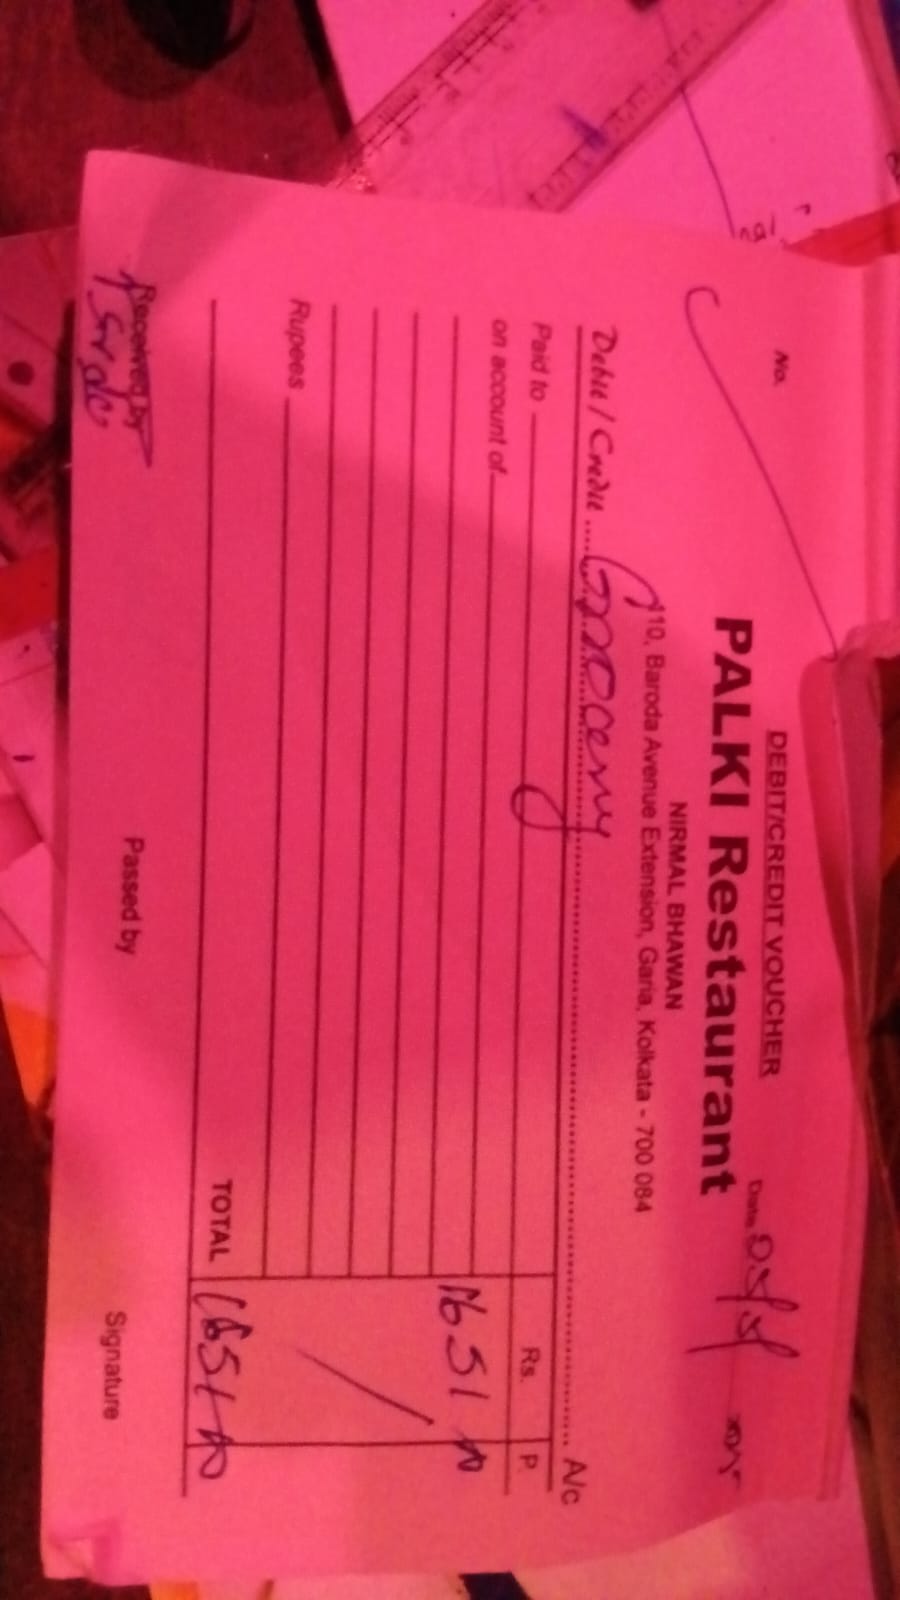 DEBIT/CREDIT VOUCHER
No.
Date
PALKI Restaurant
NIRMAL BHAWAN
110, Baroda Avenue Extension, Garia, Kolkata - 700 084
Debit / Credit ..... Grocery ..... A/c
Paid to Rs. P.
on account of
1651 00
Rupees
TOTAL 1651 00
Received by
Passed by
Signature